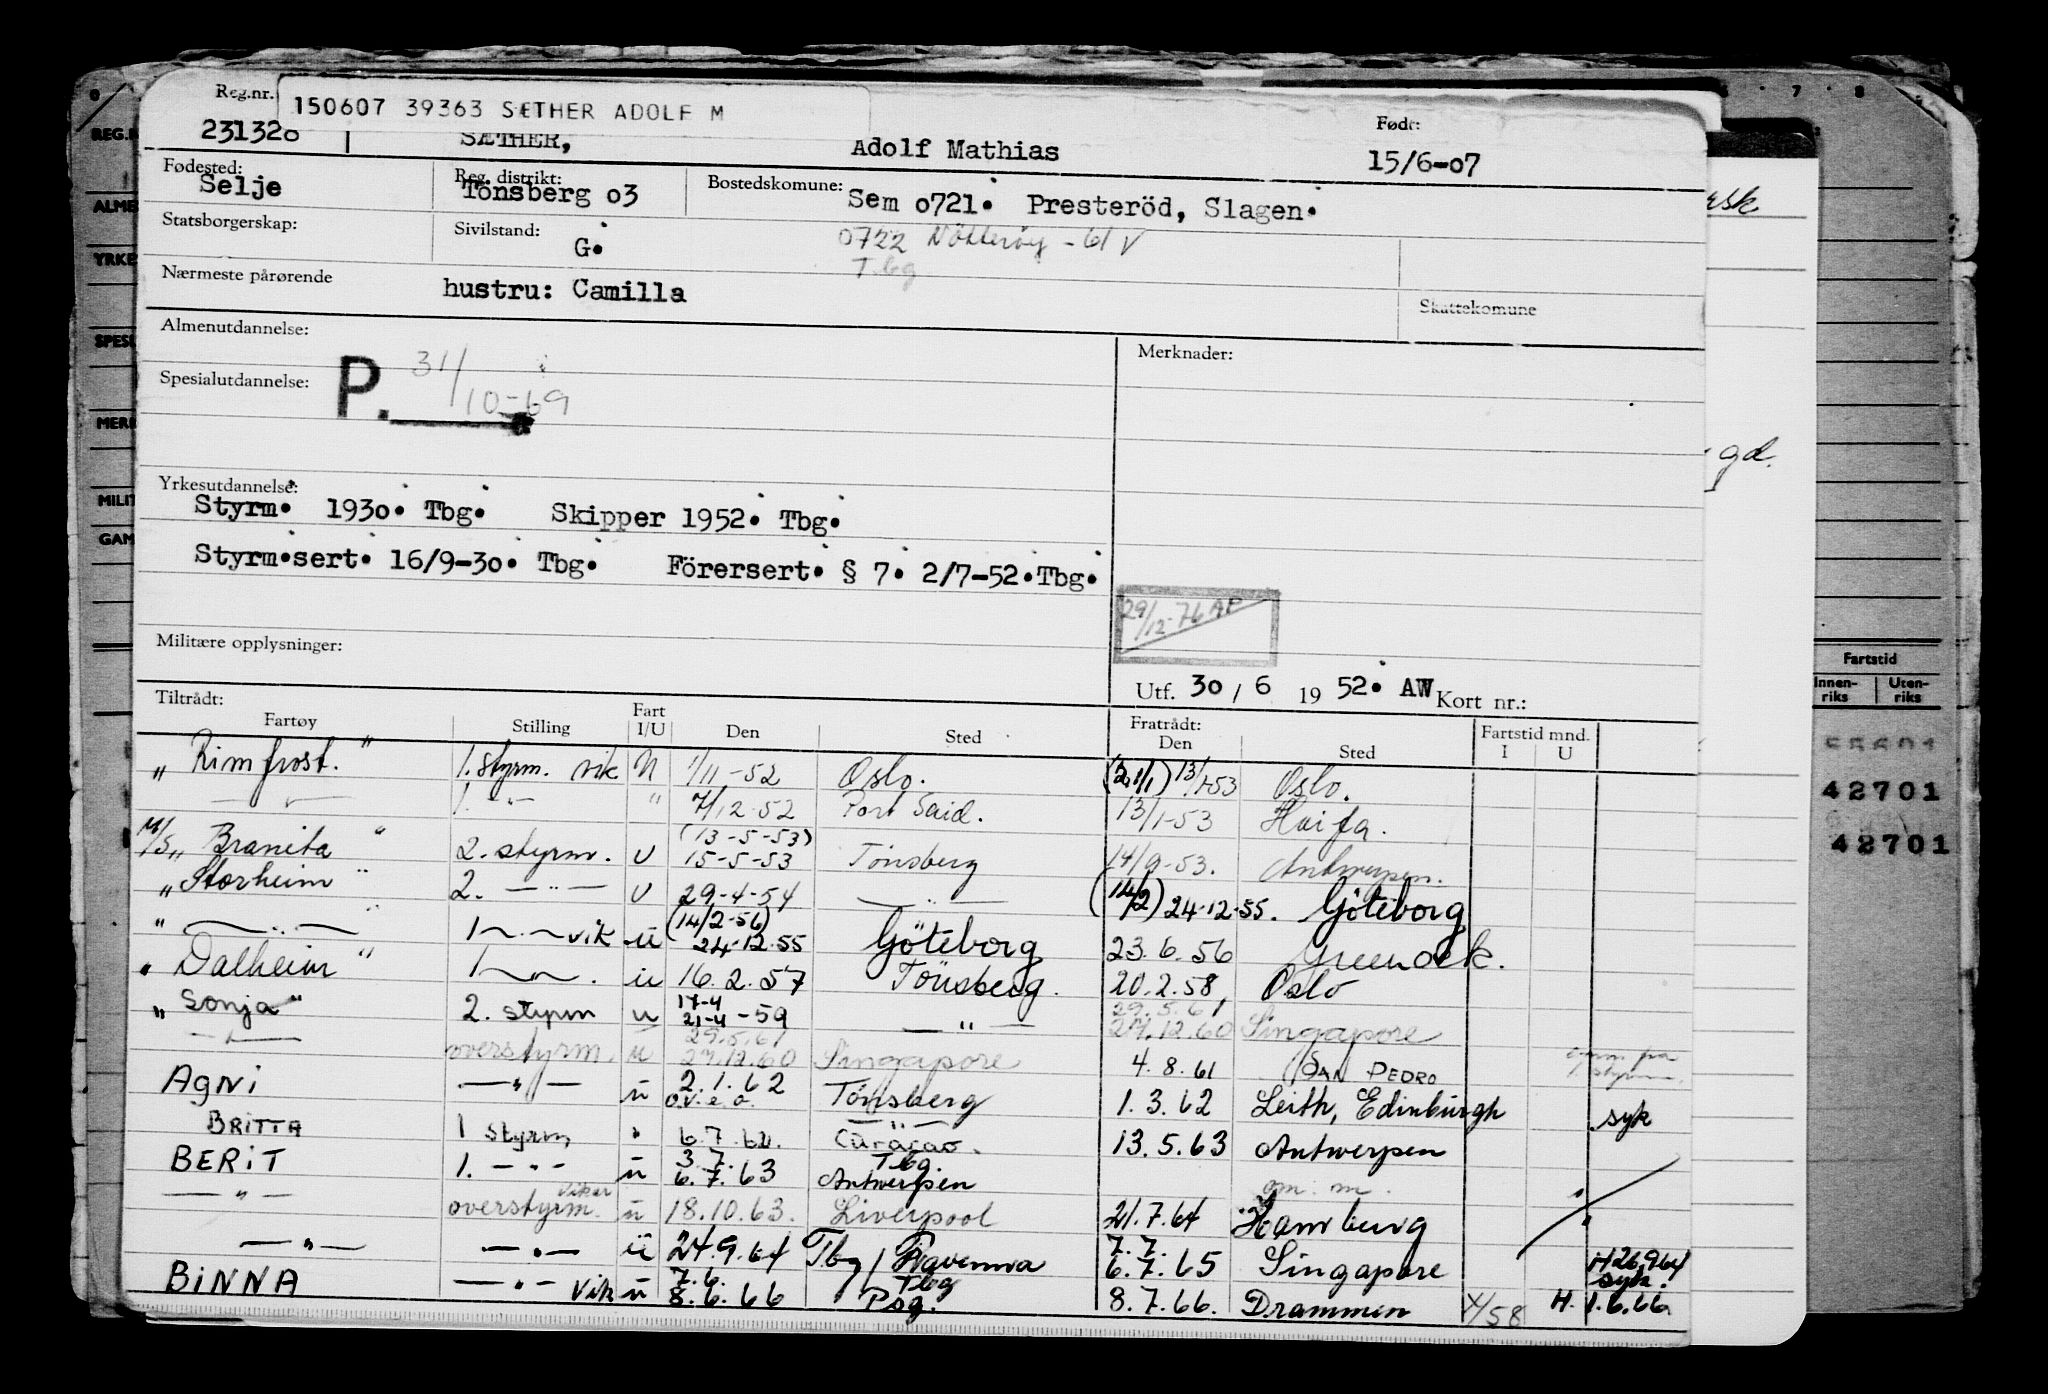 Reg.nr. 150607 39363 SÆTHER ADOLF M Født:
231328 SÆTHER, Adolf Mathias 15/6-07
Fødested: Reg. distrikt: Bostedskomune:
Selje Tönsberg o3 Sem o721. Presteröd, Slagen.
Statsborgerskap: Sivilstand: G. 0722 Nötteröy - 61 V
T.bg
Nærmeste pårørende hustru: Camilla Skattekomune
Almenutdannelse: Merknader:
Spesialutdannelse: P. 31/10-69
Yrkesutdannelse:
Styrm. 193o. Tbg. Skipper 1952. Tbg.
Styrm.sert. 16/9-3o. Tbg. Förersert. § 7. 2/7-52.Tbg.
29/12-76 AP
Militære opplysninger:
Utf. 30 / 6 19 52. AW Kort nr.:
Tiltrådt: Fratrådt: Fartstid mnd.
Fartøy Stilling Fart I/U Den Sted Den Sted I U
"Rimfrost." 1. styrm. vik. U 1/11-52 Oslo. (2.1/1) 13/1-53 Oslo.
— " — 1. — " — " 7/12-52 Port Said. 13/1-53 Haifa.
M/S "Branita" 2. styrm. U (13-5-53) 15-5-53 Tönsberg 14/9-53. Antwerpen.
"Storheim" 2. — " — U 29-4-54 — " — (14/2) 24-12-55. Göteborg
" — " — " 1 — " — vik u (14/2-56) 24-12-55 Göteborg 23.6.56 Greenock.
"Dalheim" 1 — " — . u 16.2.57 Tönsberg. 20.2.58, Oslo
"Sonja" 2. styrm u 17-4 21-4-59 — " — 29.5.61 27.12.60 Singapore
— " — overstyrm. u 29.5.61 27.12.60 Singapore 4.8.61 SAN PEDRO
AGNI — " — u 2.1.62 Tönsberg 1.3.62 Leith, Edinburgh syk
BRITTA 1 styrm, " 6.7.62. — " — Curacao. 13.5.63 Antwerpen
BERIT 1. — " — u 3.7. 6.7.63 Tbg. Antwerpen om. m.
— " — overstyrm. vikar u 18.10.63. Liverpool 21.7.64 Hamburg "
— " — — " — u 24.9.64 Tbg / Ravenna 7.7. 6.7.65 Singapore H 26.9.64 syk.
BINNA — " — Vik u 7.6. 8.6.66 Tbg Psg. 8.7.66. Drammen V/58 H. 1.6.66
REG.
ALME
YRKE
SPES
MERK
MILIT
GAM
7 8
rsk
gd.
Fartstid
Innen-riks Uten-riks
42701
42701